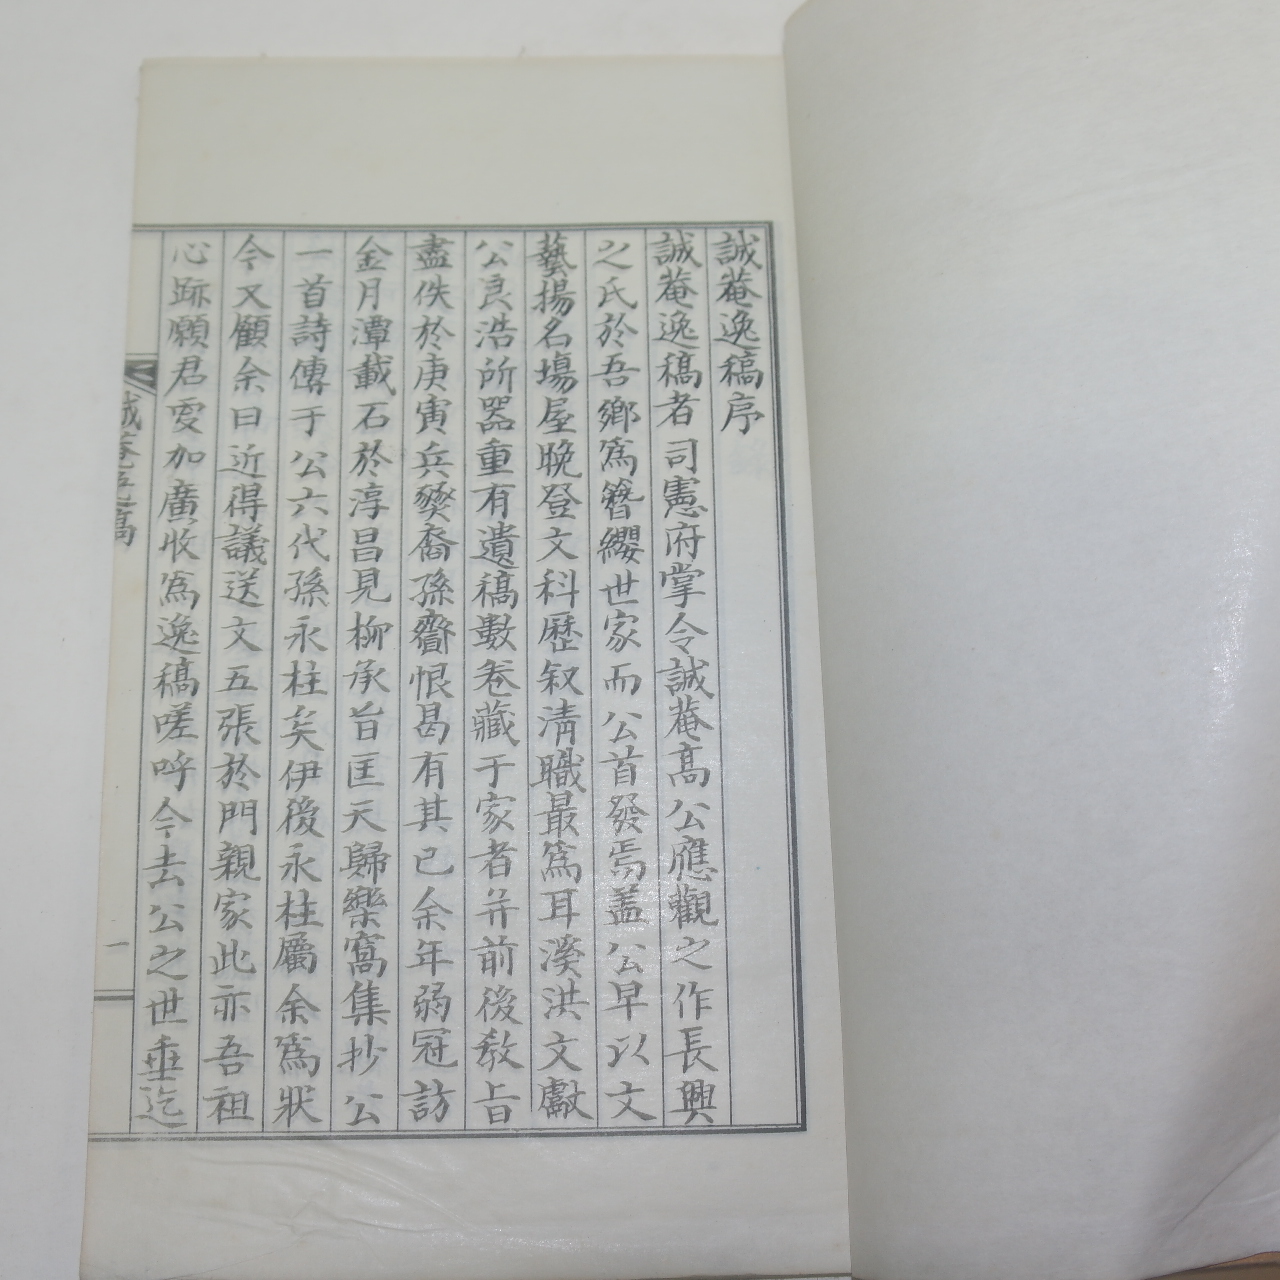 誠菴逸稿序
誠菴逸稿者司憲府掌令誠菴高公應觀之作長興
之氏於吾鄉爲簪纓世家而公首發焉蓋公早以文
藝揚名場屋晚登文科歷叙淸職最爲耳溪洪文獻
公良浩所器重有遺稿數卷藏于家者并前後敎旨
盡佚於庚寅兵燹裔孫齎恨曷有其已余年弱冠訪
金月潭載石於淳昌見柳承旨匡天歸樂窩集抄公
一首詩傳于公六代孫永柱矣伊後永柱屬余爲狀
今又顧余曰近得議送文五張於門親家此亦吾祖
心跡願君更加廣收爲逸稿嗟呼今去公之世垂迄
誠菴逸稿
一